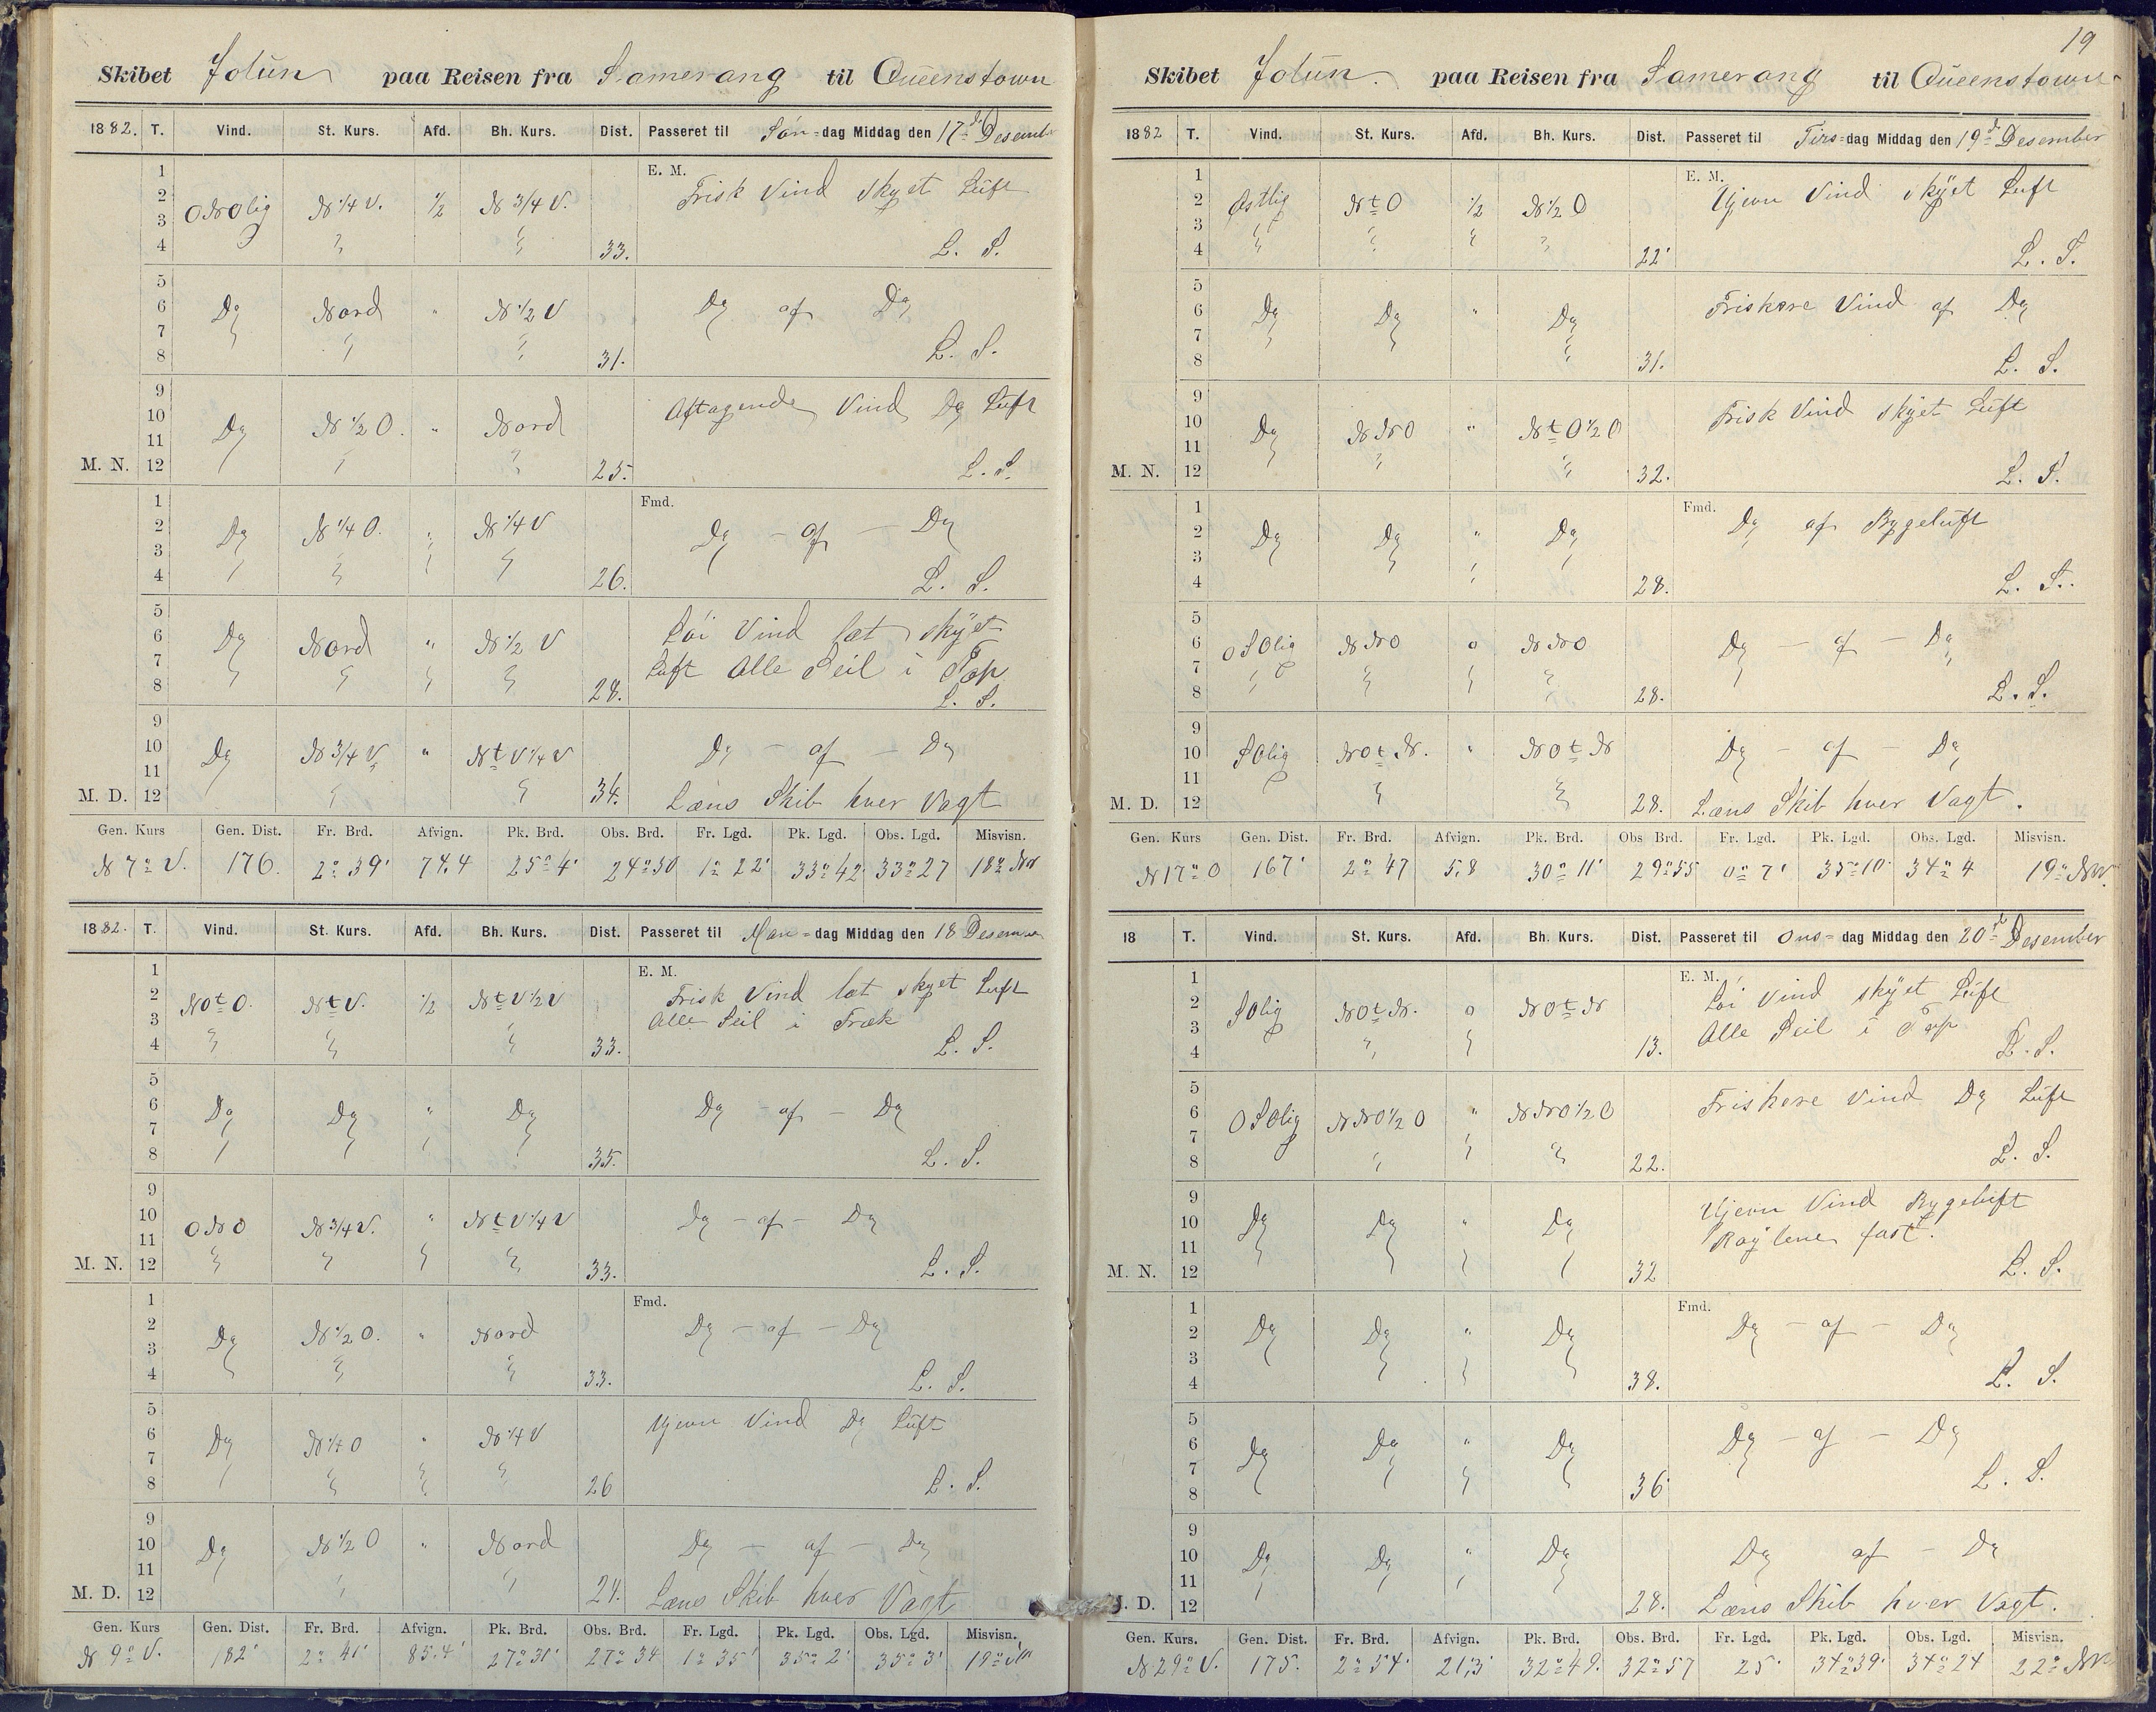 Skibet Jotun paa Reisen fra Samerang til Queenstown
1882. T. Vind. St. Kurs. Afd. Bh. Kurs. Dist. Passeret til Søn-dag Middag den 17de Desemb
E. M.
1
2 ONOlig N 1/4 V. 1/2 N 3/4 V. Frisk Vind skyet Luft
3
4 33. L. S.
5
6 Do Nord " N 1/2 V Do af Do
7
8 31. L. S.
9
10 Do N 1/2 O. " Nord Aftagende Vind Do Luft
11
M. N. 12 25. L. S.
Fmd.
1
2 Do N 1/4 O. " N 1/4 V Do - af - Do
3
4 26. L. S.
5
6 Do Nord " N 1/2 V Løi Vind læt skyet
7 Luft Alle Seil i Top
8 28. L. S.
9
10 Do N 3/4 V " Nt V 1/4 V Do - af - Do
11
M. D. 12 34. Læns Skib hver Vagt
Gen. Kurs Gen. Dist. Fr. Brd. Afvign. Pk. Brd. Obs. Brd. Fr. Lgd. Pk. Lgd. Obs. Lgd. Misvisn.
N 7° V. 176. 2° 39' 74.4 25° 4' 24° 50 1° 22' 33° 42' 33° 27 18° NV
1882. T. Vind. St. Kurs. Afd. Bh. Kurs. Dist. Passeret til Man-dag Middag den 18 Desember
E. M.
1
2 NOtO. NtV. 1/2 NtV 1/2 V Frisk Vind læt skyet Luft
3 Alle Seil i Træk
4 33. L. S.
5
6 Do Do " Do Do af - Do
7
8 35. L. S.
9
10 ONO N 3/4 V. " NtV 1/4 V Do - af - Do
11
M. N. 12 33. L. S.
Fmd.
1
2 Do N 1/2 O. " Nord Do - af - Do
3
4 33. L. S.
5
6 Do N 1/4 O " N 1/4 V Ujevn Vind Do Luft
7
8 26 L. S.
9
10 Do N 1/2 O " Nord Do - af - Do
11
M. D. 12 24. Læns Skib hver Vagt
Gen. Kurs Gen. Dist. Fr. Brd. Afvign. Pk. Brd. Obs. Brd. Fr. Lgd. Pk. Lgd. Obs. Lgd. Misvisn.
N 9° V. 182' 2° 41' 85.4' 27° 31' 27° 34 1° 35' 35° 2' 35° 3' 19°
19
Skibet Jotun. paa Reisen fra Samerang til Queenstown
1882 T. Vind. St. Kurs. Afd. Bh. Kurs. Dist. Passeret til Tirs-dag Middag den 19de Desember
E. M.
1
2 Østlig NtO 1/2 N 1/2 O Ujevn Vind skyet Luft
3
4 22' L. S.
5
6 Do Do " Do Friskere Vind af Do
7
8 31. L. S.
9
10 Do NNO " NtO 1/2 O Frisk Vind skyet Luft
11
M. N. 12 32. L. S.
Fmd.
1
2 Do Do " Do Do af Bygeluft
3
4 28. L. S.
5
6 OSOlig NNO o NNO Do - af - Do
7
8 28. L. S.
9
10 SOlig NOtN. " NOtN Do - af - Do
11
M. D. 12 28. Læns Skib hver Vagt.
Gen. Kurs Gen. Dist. Fr. Brd. Afvign. Pk. Brd. Obs Brd. Fr. Lgd. Pk. Lgd. Obs. Lgd. Misvisn.
N 17° O 167' 2° 47 5,8 30° 11' 29° 55 0° 7' 35° 10' 34° 4 19° NV.
18 T. Vind. St. Kurs. Afd. Bh. Kurs. Dist. Passeret til Ons-dag Middag den 20de Desember
E. M.
1
2 SOlig NOtN. o NOtN Løi Vind skyet Luft
3 Alle Seil i Top
4 13. L. S.
5
6 OSOlig NNO 1/2 O " NNO 1/2 O Friskere Vind Do Luft
7
8 22. L. S.
9
10 Do Do " Do Ujevn Vind Bygeluft
11 Røylene fast.
M. N. 12 32 L. S.
Fmd.
1
2 Do Do " Do Do - af - Do
3
4 38. L. S.
5
6 Do Do " Do Do - af - Do
7
8 36 L. S.
9
10 Do Do " Do Do af - Do
11
. D. 12 28. Læns Skib hver Vagt.
Gen. Kurs. Gen. Dist. Fr. Brd. Afvign. Pk. Brd. Obs. Brd. Fr. Lgd. Pk. Lgd. Obs. Lgd. Misvisn.
N 29° V. 175. 2° 54' 21,3' 32° 49. 32° 57 25' 34° 39' 34° 24 22° NV